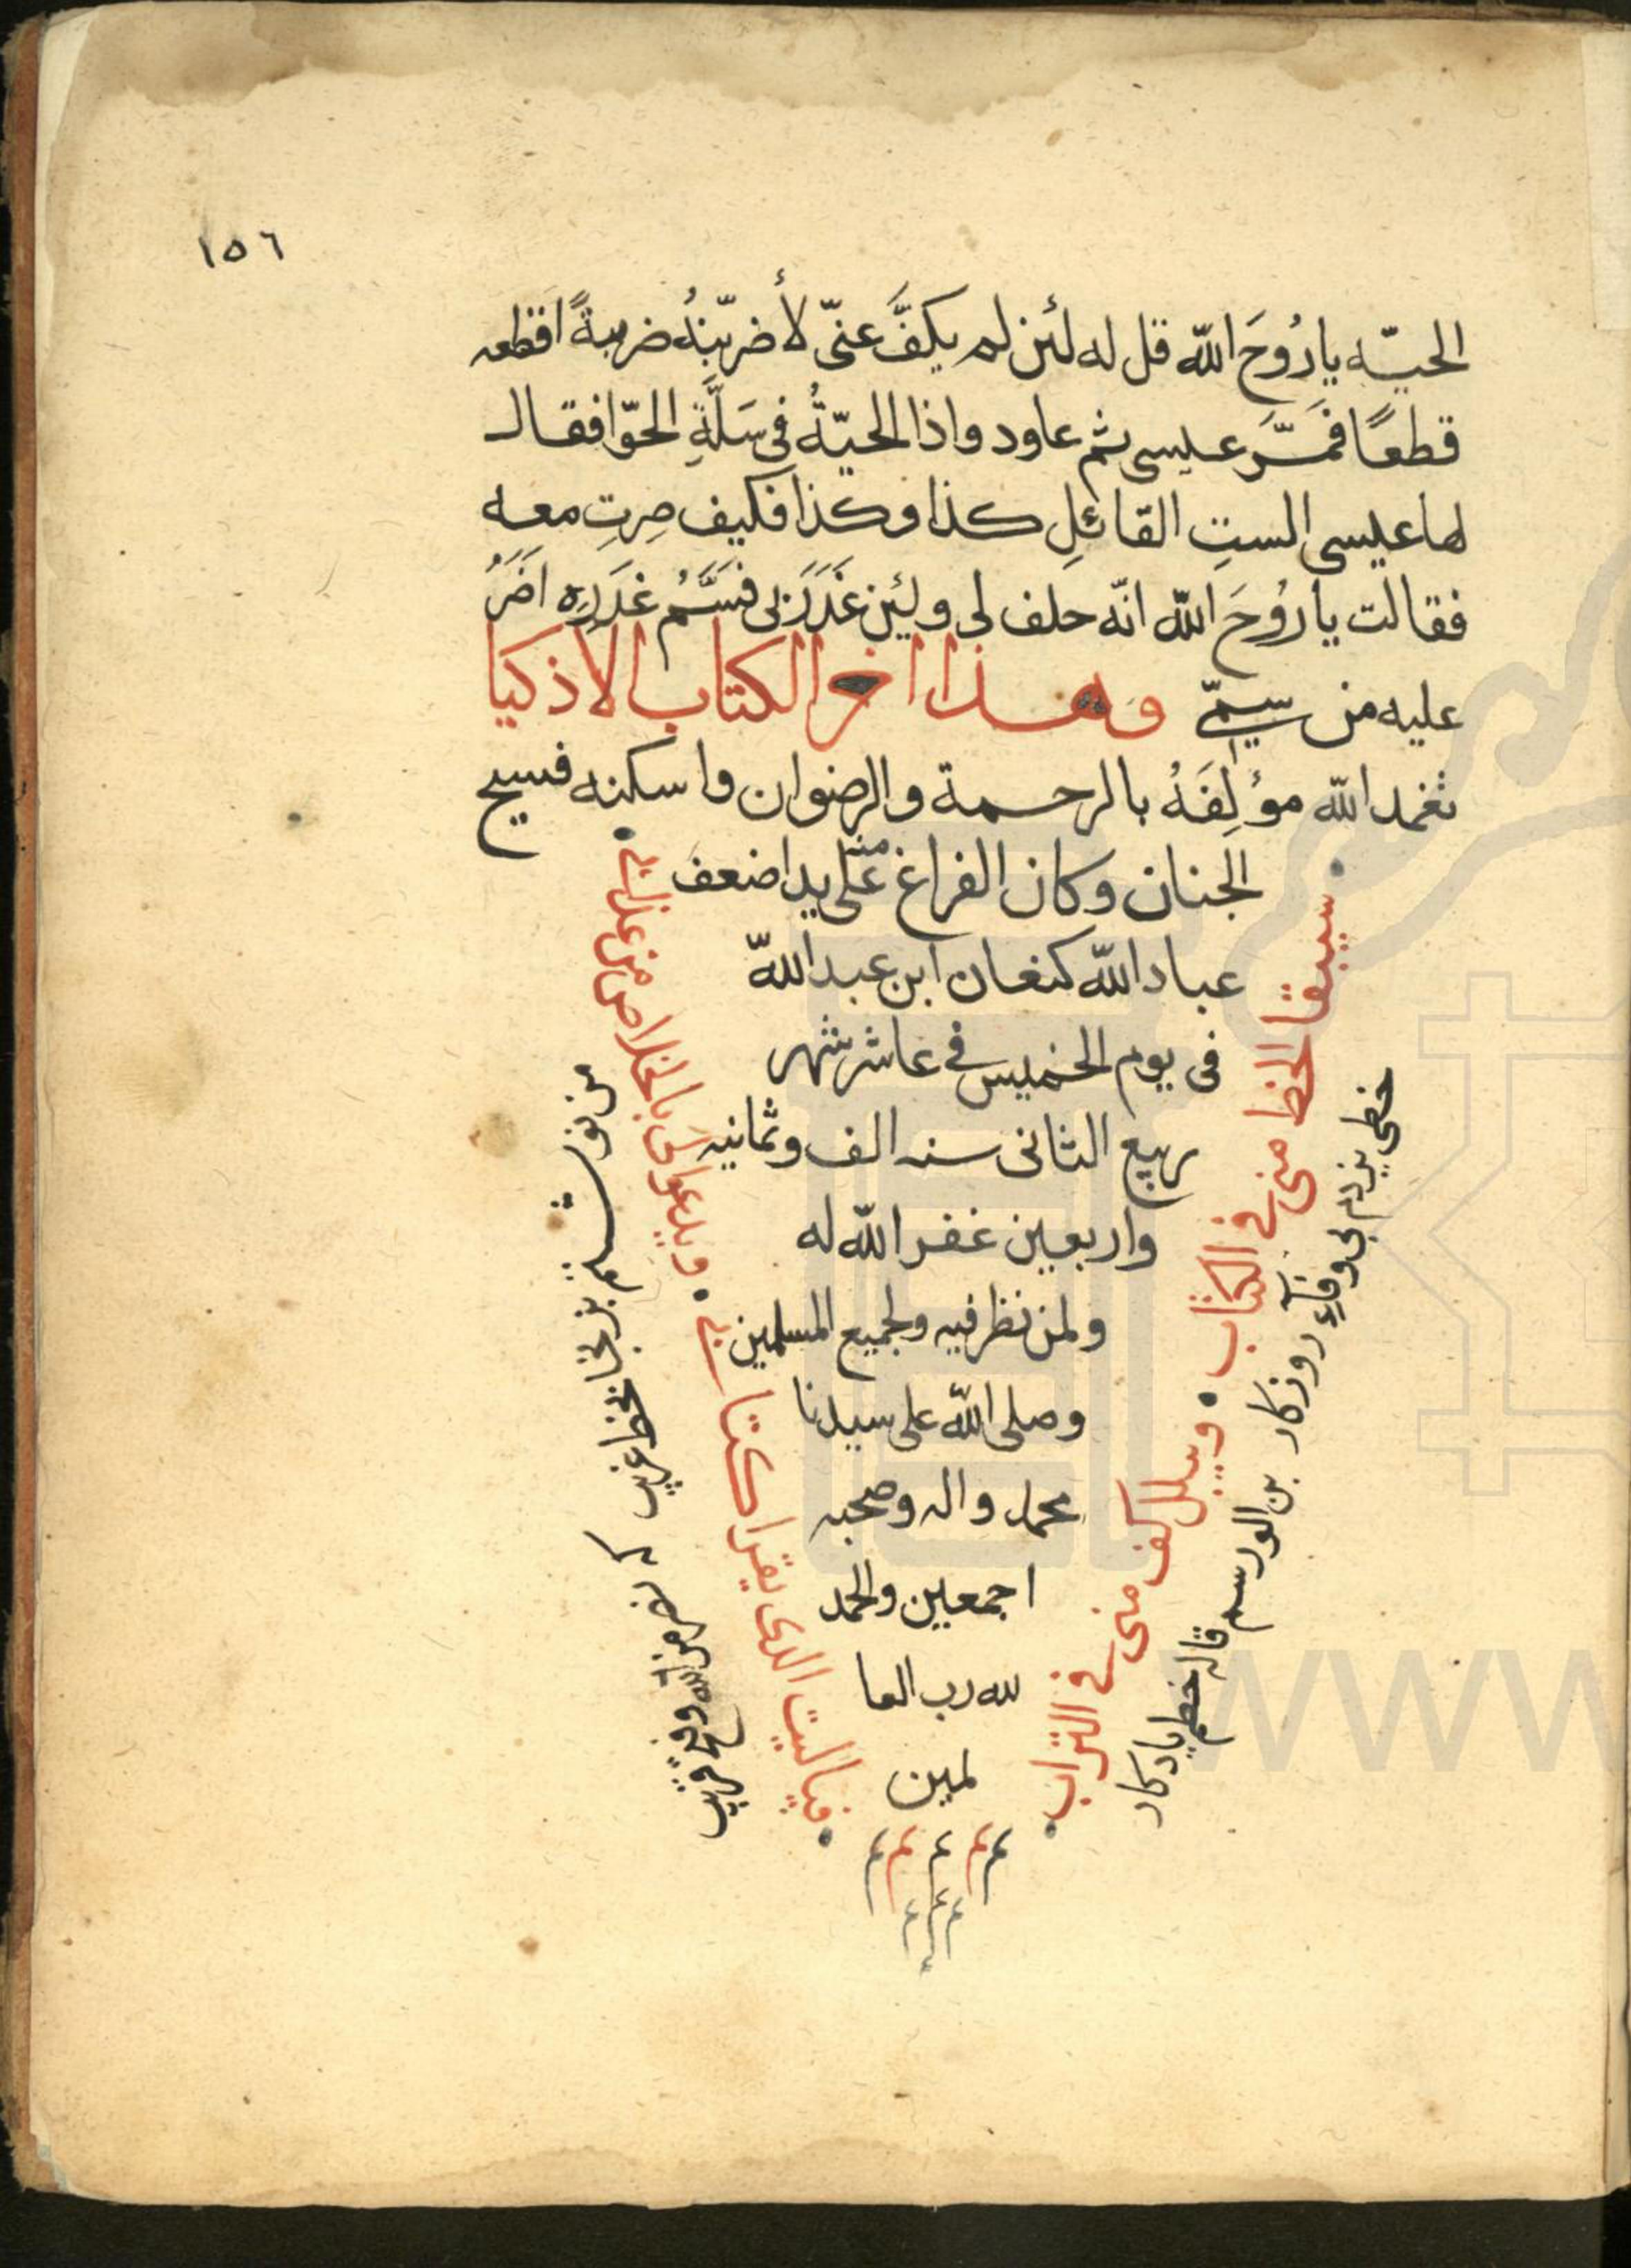 ١٥٦
الحيّه يا رُوحَ اللّه قل له لئن لم يكفَّ عنّى لأضربّنهُ ضربةً اقطعه
قطعًا فمَرَّ عيسى ثم عاود واذا الحيّةُ فى سَلَّةِ الحوّا فقال
لها عليسى الستِ القائلِ كذا وكذا فكيف صِرتِ معه
فقالت يا رُوحَ اللّه انّه حلف لى ولئن غَدَرَنى فسَمُّ غَدَرِه اَضَرُ
عليه من سمّى وهذا اخر الكتاب الاذكيا
تغمد اللّه مؤلِفَهُ بالرحمة والرضوان واسكنه فسيح
الجنان وكان الفراغ منه على يد اضعف
عباد اللّه كنعان ابن عبد اللّه
فى يوم الخميس فى عاشر شهر
ربيع الثانى سنه الف وثمانيه
واربعين غفر اللّه له
ولمن نظر فيه ولجميع المسلمين
وصلى اللّه على سيدنا
محمد واله وصحبه
اجمعين والحمد
لله رب العا
لمين
م م م م م
سيبقا الخط منى فى الكتاب • ويبلى الكف منى فى التراب •
• فياليت الذى يقرا كتابى • ويدعوا لى بالخلاص من عذابى •
من نوشتم بخط غريب كه نصر من الله وفتح قريب
روزكار
خطم يادكار